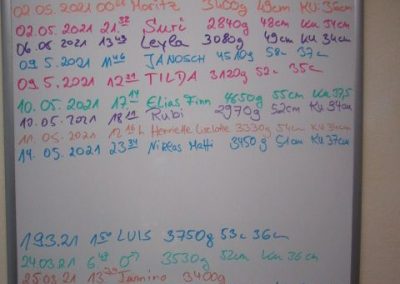 02.05.2021 Moritz 3400g 49cm KU 36cm
02.05.2021 21 32 Suri 2840g 48cm ku 34cm
06.05.2021 13 49 Leyla 3080g 49cm KU 34cm
09.5.2021 11 46 JANOSCH 4510g 58c 37c
09.5.2021 12 TILDA 3120g 52c 35c
10.05.2021 17 Elias Finn 4650g 55cm KU 37,5
10.05.2021 18 Rubi 2970g 52cm KU 34cm
11.05.2021 12 Henriette 3330g 54cm KU
14.05.2021 23 Niklas Matti 3450g 51cm KU 37cm
19.3.21 1 LUIS 3750g 53c 36cm
24.03.21 6 3530g 52cm ku 36cm
25.03.21 13 Jannino 3400g